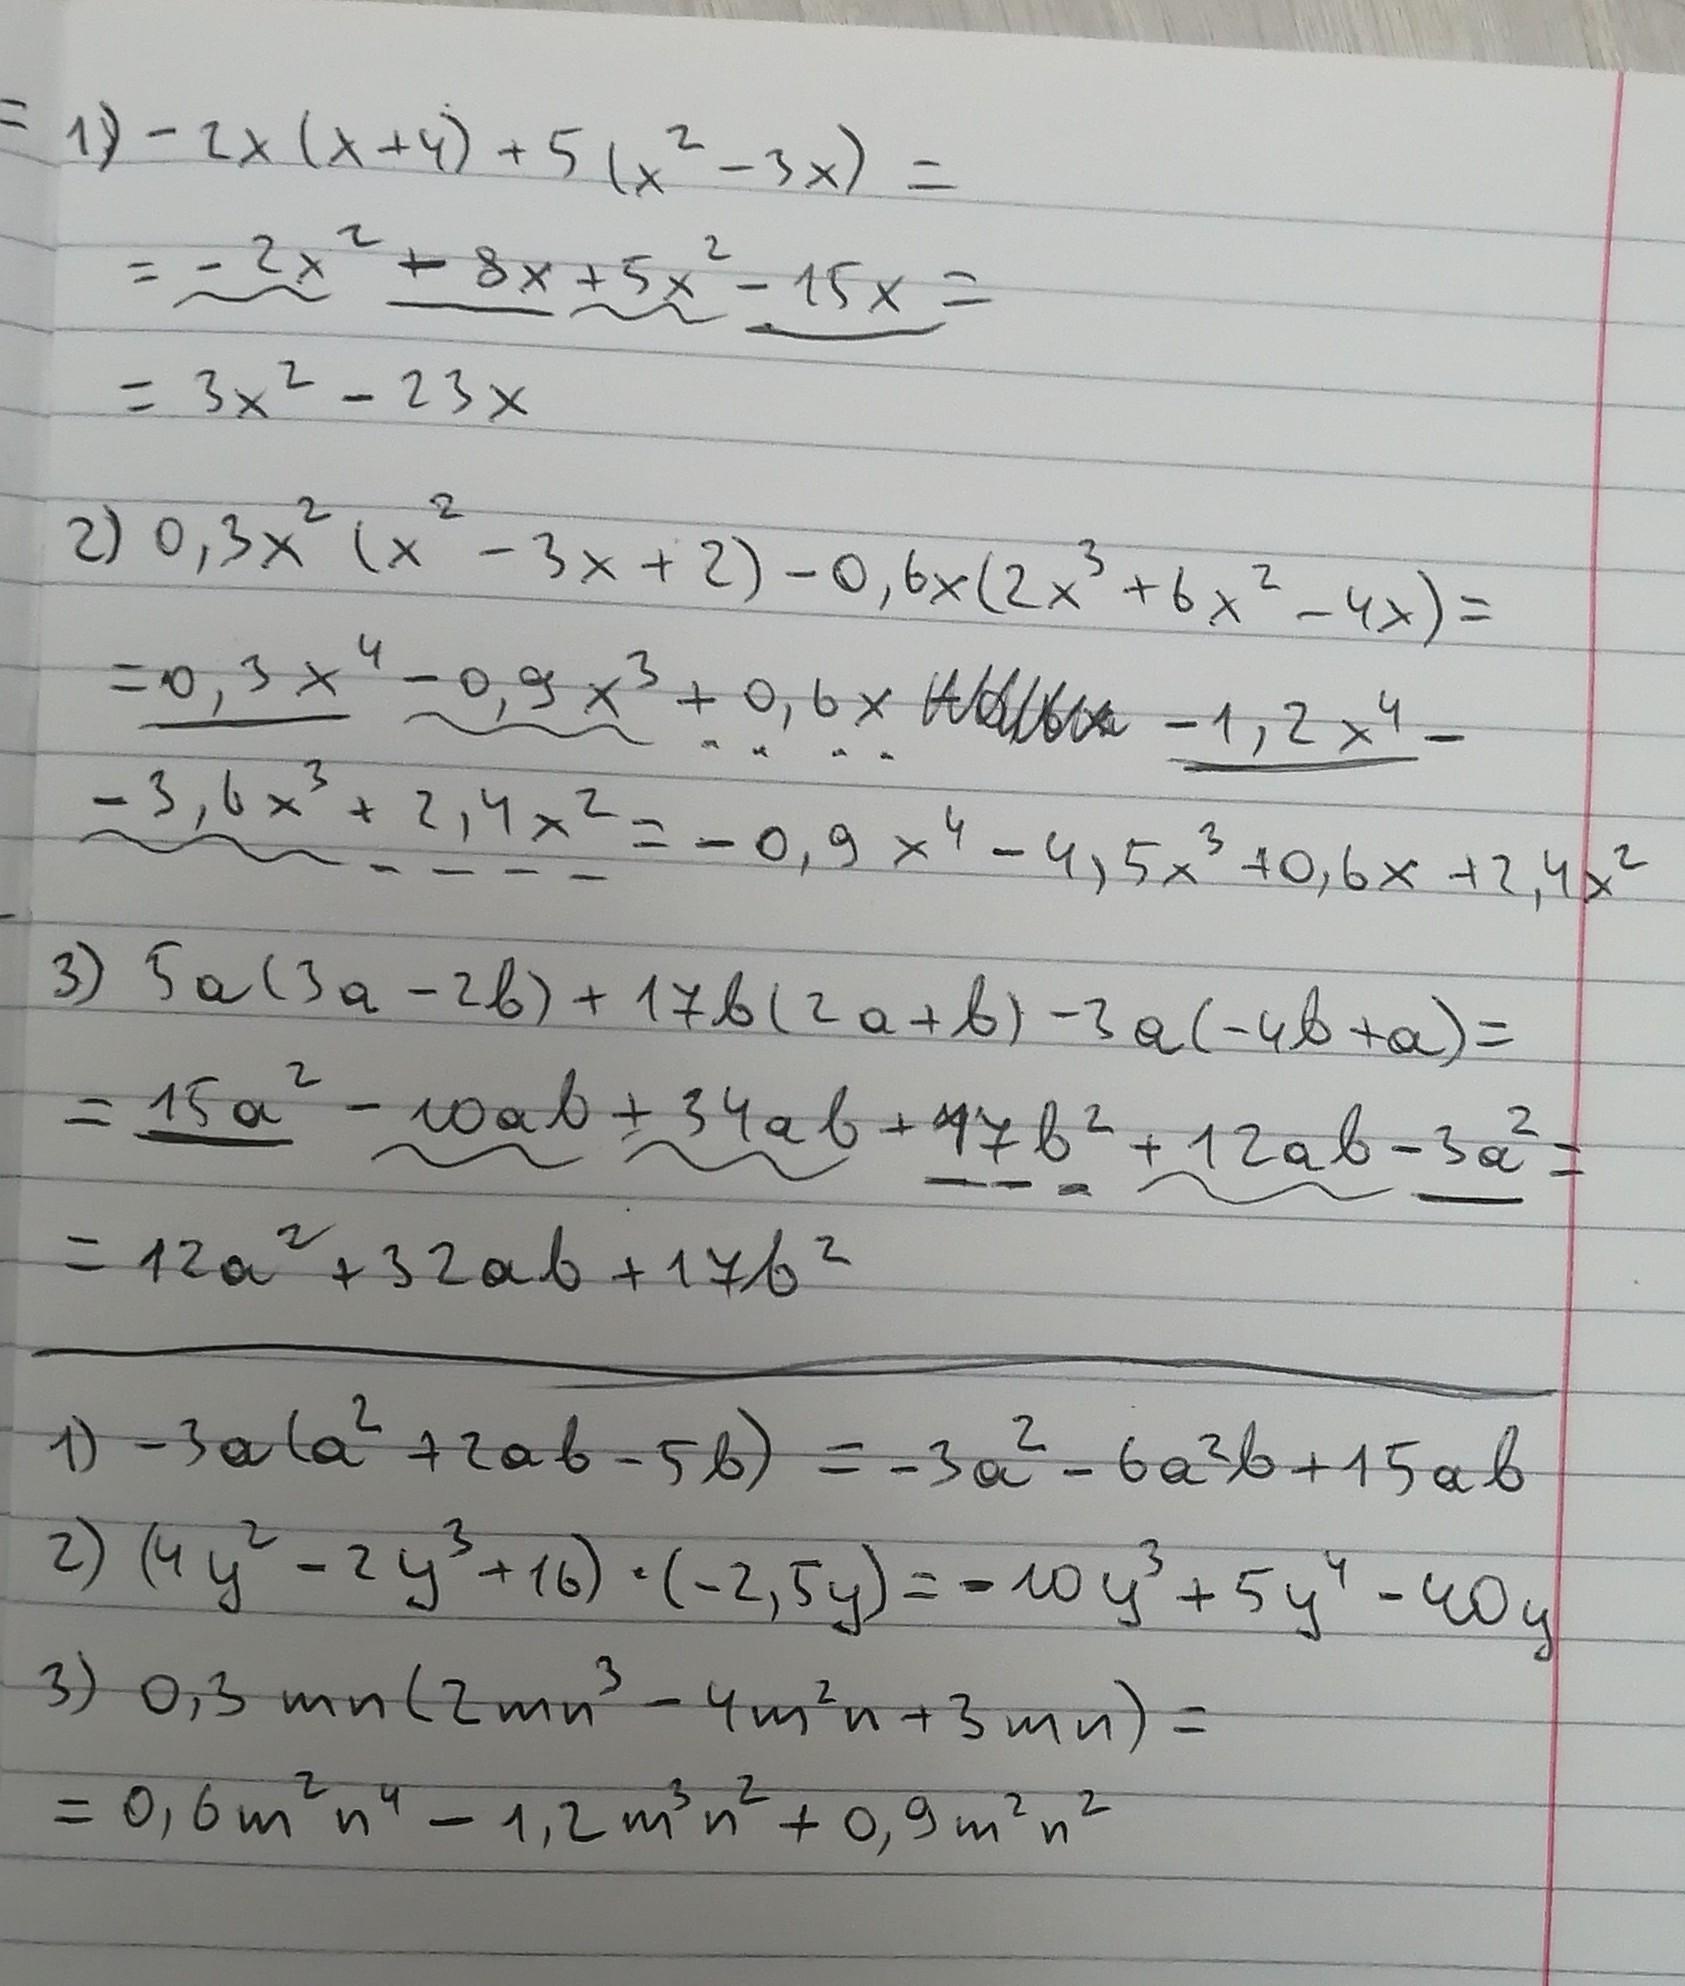 = 1) - 2x (x+4) + 5 (x² - 3x) =
= - 2x² - 8x + 5x² - 15x =
= 3x² - 23x
2) 0,3x² (x² - 3x + 2) - 0,6x (2x³ + 6x² - 4x) =
= 0,3x⁴ - 0,9x³ + 0,6x - 1,2x⁴ -
- 3,6x³ + 2,4x² = - 0,9x⁴ - 4,5x³ + 0,6x + 2,4x²
3) 5a (3a - 2b) + 17b (2a + b) - 3a (-4b + a) =
= 15a² - 10ab + 34ab + 17b² + 12ab - 3a² =
= 12a² + 32ab + 17b²
1) - 3a (a² + 2ab - 5b) = - 3a² - 6a²b + 15ab
2) (4y² - 2y³ + 16) · (-2,5y) = - 10y³ + 5y⁴ - 40y
3) 0,3 mn (2mn³ - 4m²n + 3mn) =
= 0,6m²n⁴ - 1,2m³n² + 0,9m²n²